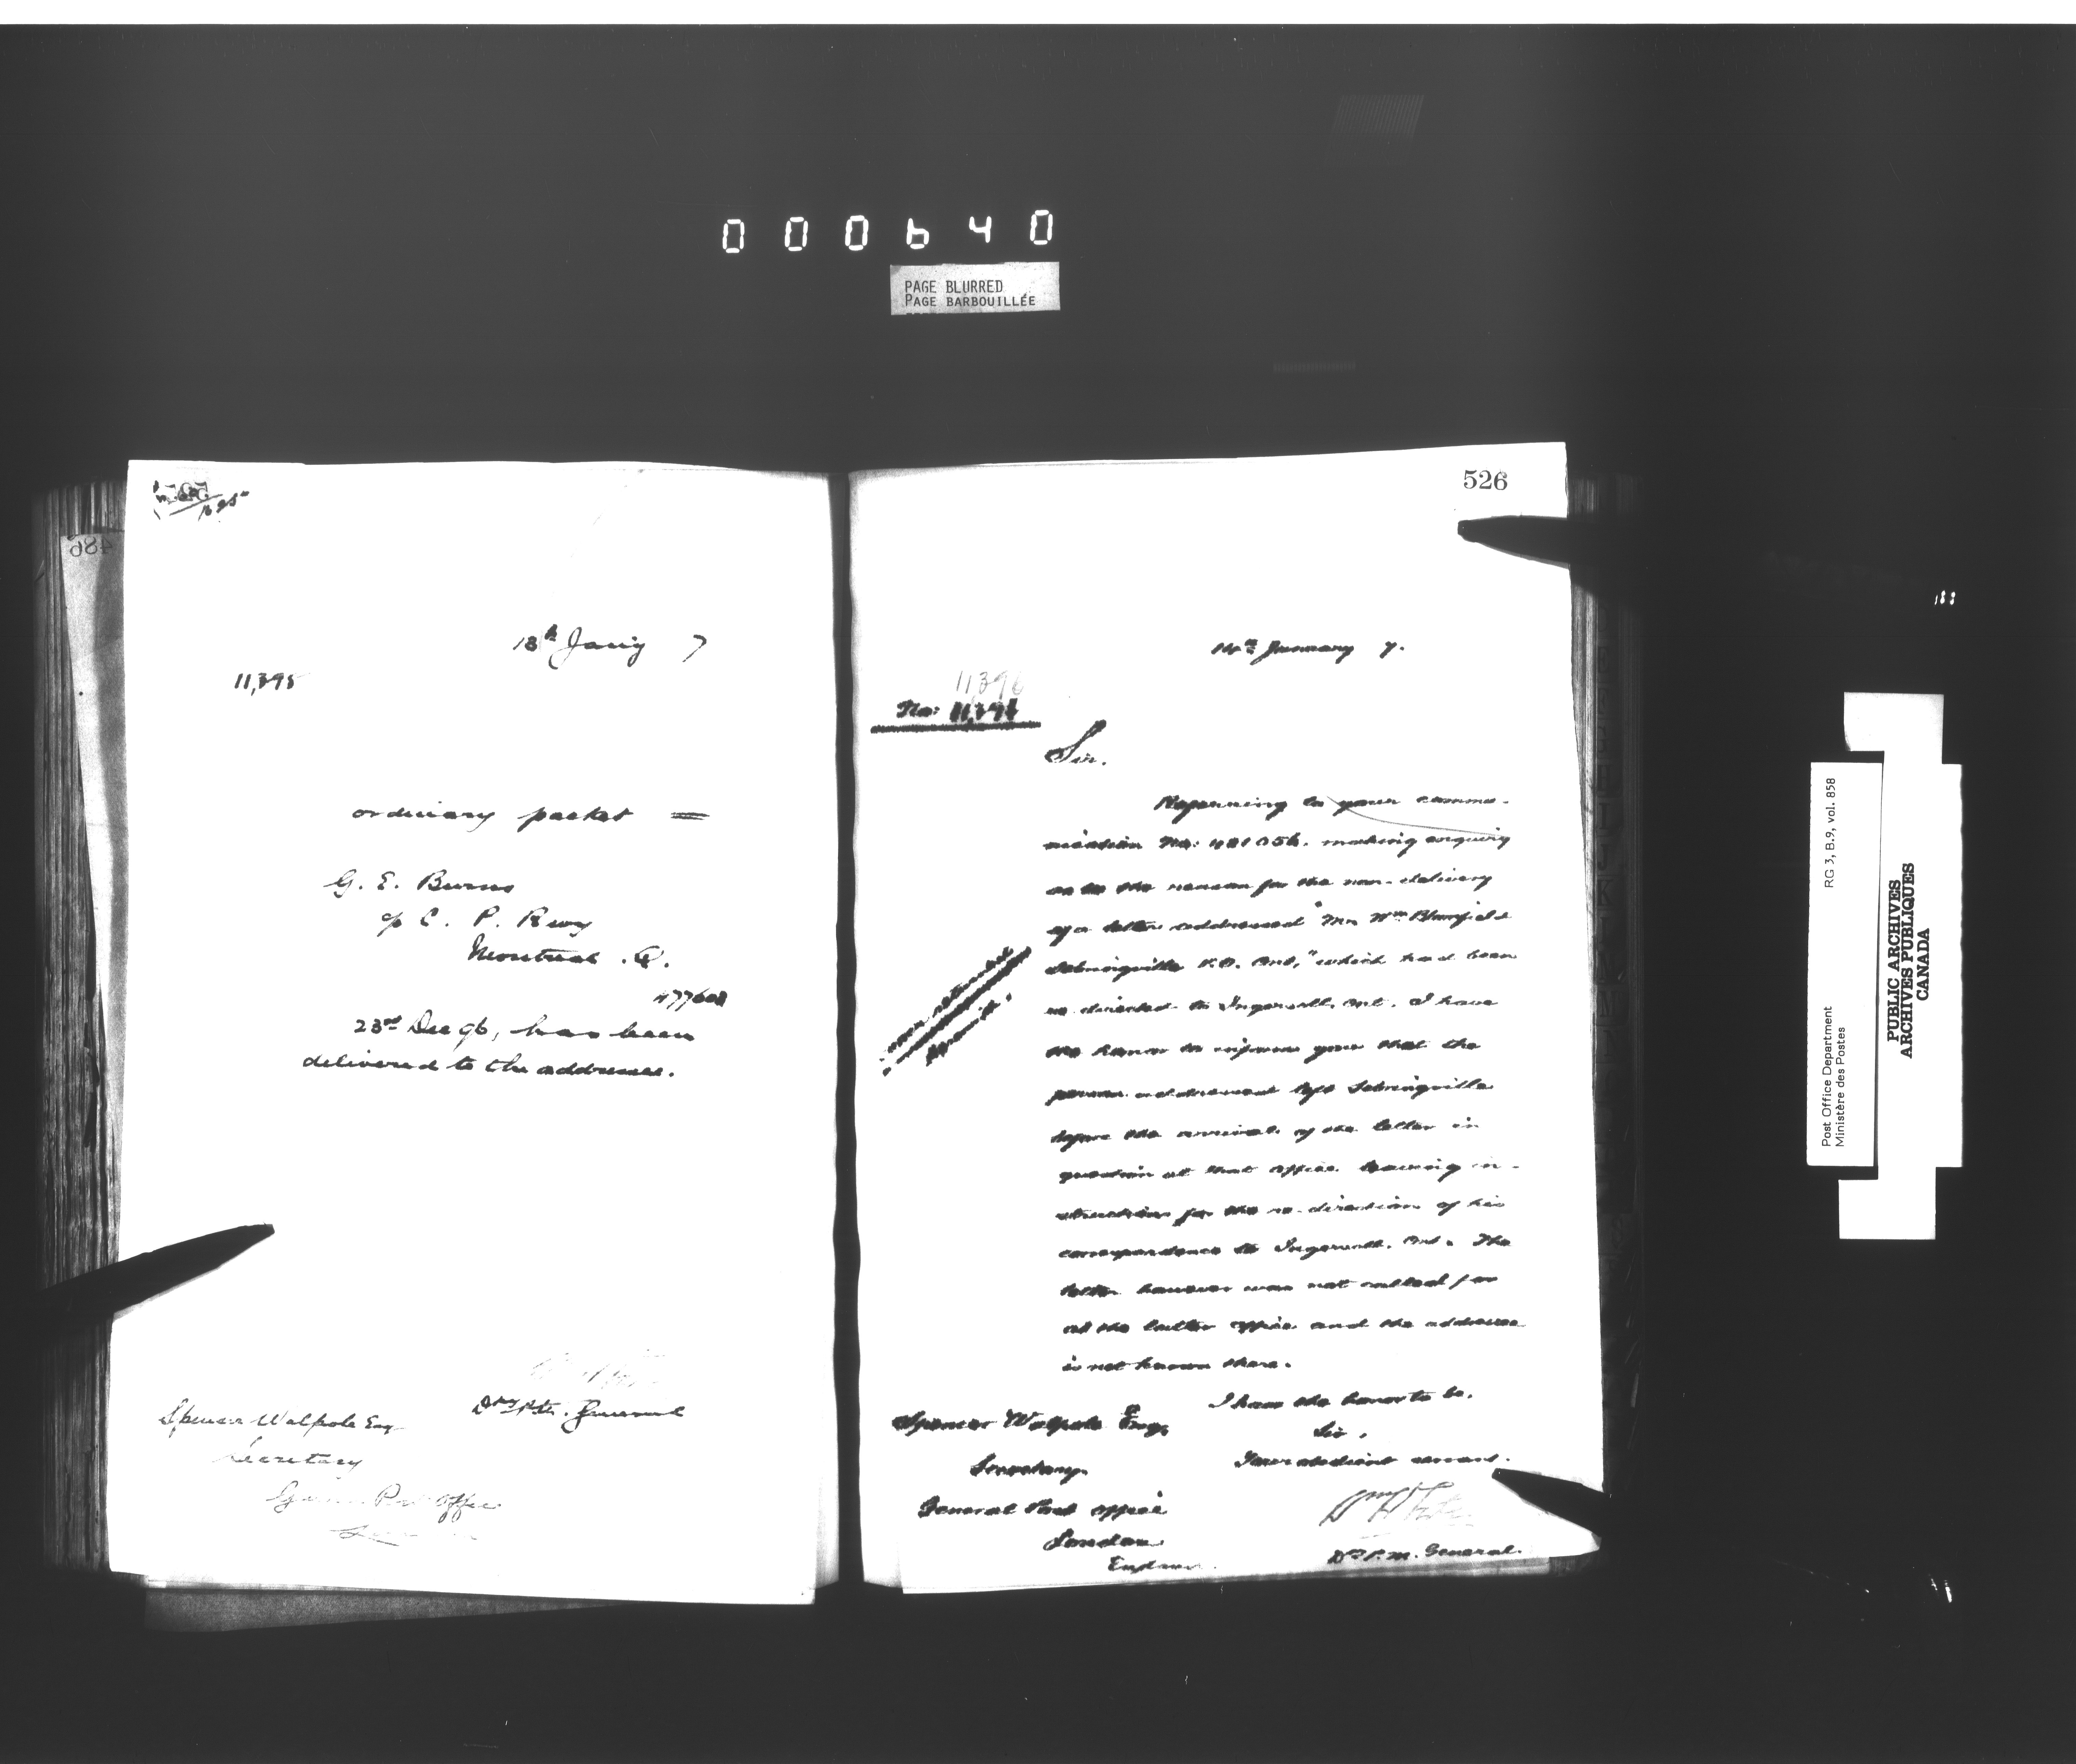 000640
PAGE BLURRED
PAGE BARBOUILLÉE
486
13th Jan'y 7
11,395
ordinary packet =
G. E. Burns
c/o C. P. Rwy
Montreal . Q.
477608
23rd Dec 96, has been
delivered to the addressee.
Dy P.M. General
Spencer Walpole Esq
Secretary
General Post Office
London
526
14th January 7.
11396
No: 11,396
Sir.
Referring to your commu-
nication No: 481056. making enquiry
as to the reason for the non-delivery
of a letter addressed "Mr Wm
Sebringville P.O. Ont," which had been
re-directed to Ingersoll, Ont. I have
the honor to inform you that the
person addressed left Sebringville
before the arrival of the letter in
question at that office leaving in-
structions for the re-direction of his
correspondence to Ingersoll, Ont. The
letter however was not called for
at the latter office and the addressee
is not known there.
I have the honor to be,
Sir,
Your obedient servant.
Spencer Walpole Esq.
Secretary.
General Post Office
London
England
Dy P.M. General.
Post Office Department
Ministère des Postes
RG 3, B.9, vol. 858
PUBLIC ARCHIVES
ARCHIVES PUBLIQUES
CANADA